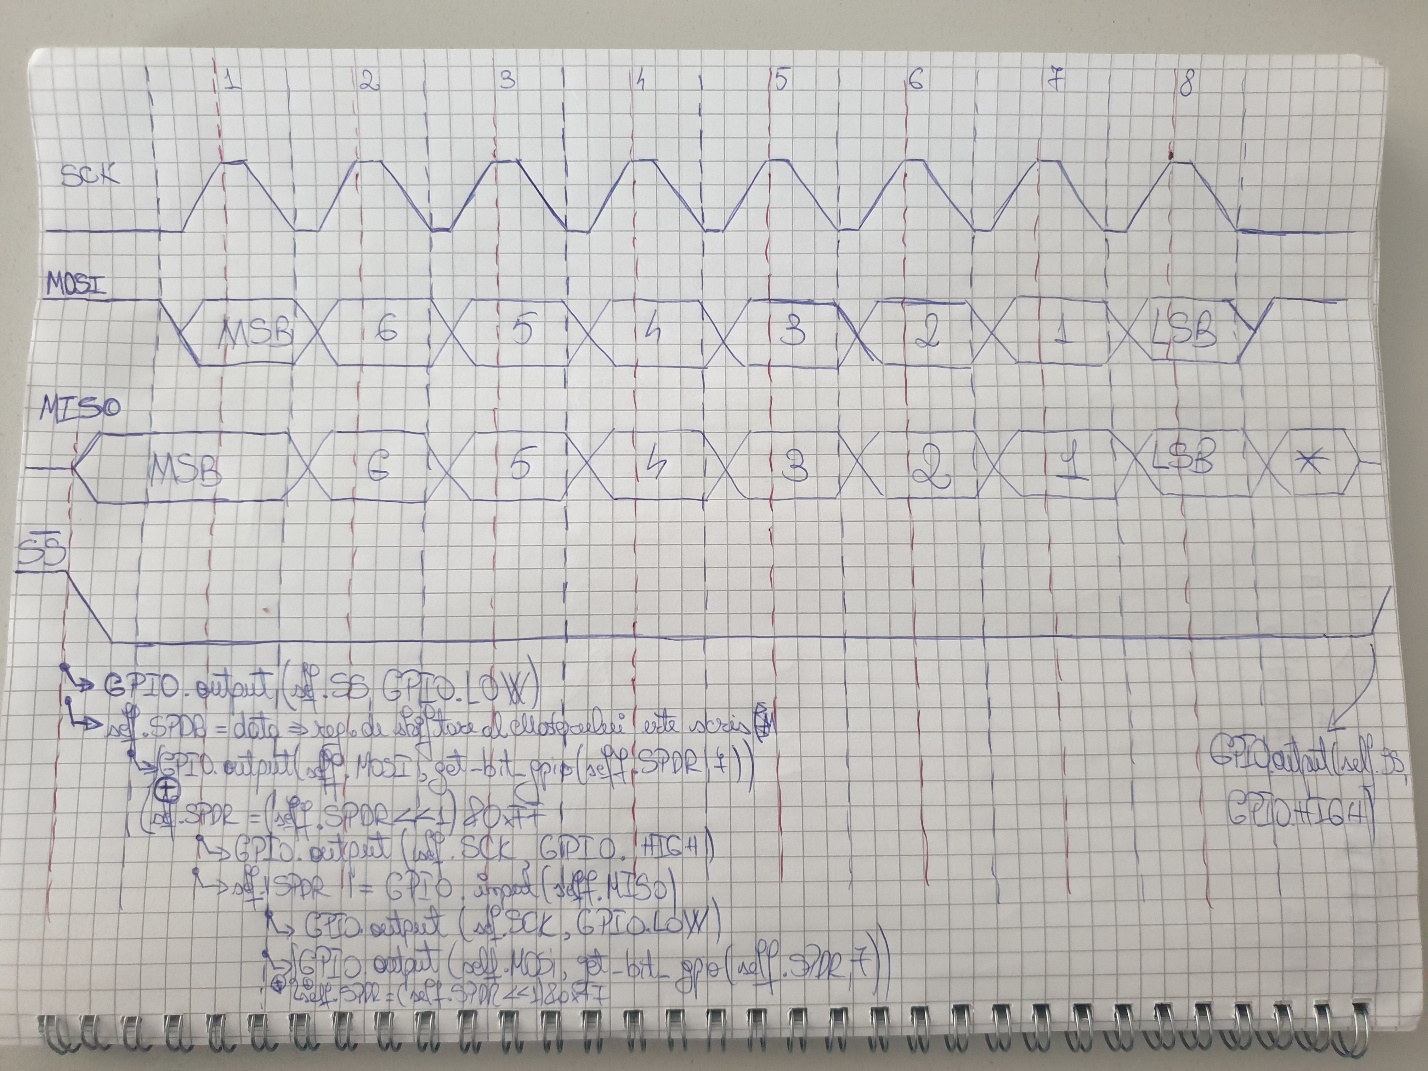 1 2 3 4 5 6 7 8
SCK
MOSI
MSB 6 5 4 3 2 1 LSB
MISO
MSB 6 5 4 3 2 1 LSB *
SS
GPIO.output(self.SS, GPIO.LOW)
self.SPDR = data ⇒ reg. de al este scris
GPIO.output(self.MOSI, get_bit_gpio(self.SPDR, 7))
+
self.SPDR = (self.SPDR << 1) & 0xFF
GPIO.output(self.SCK, GPIO.HIGH)
self.SPDR |= GPIO.input(self.MISO)
GPIO.output(self.SCK, GPIO.LOW)
GPIO.output(self.MOSI, get_bit_gpio(self.SPDR, 7))
+ self.SPDR = (self.SPDR << 1) & 0xFF
GPIO.output(self.SS,
GPIO.HIGH)